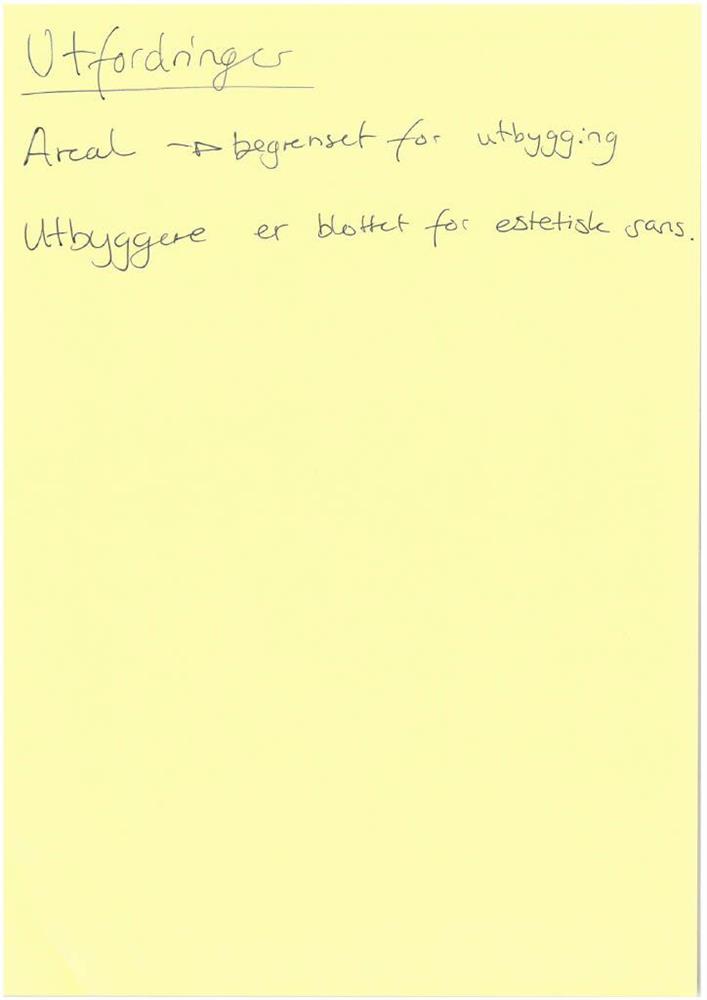 Utfordringer
Areal → begrenset for utbygging
Utbyggere er blottet for estetisk sans.